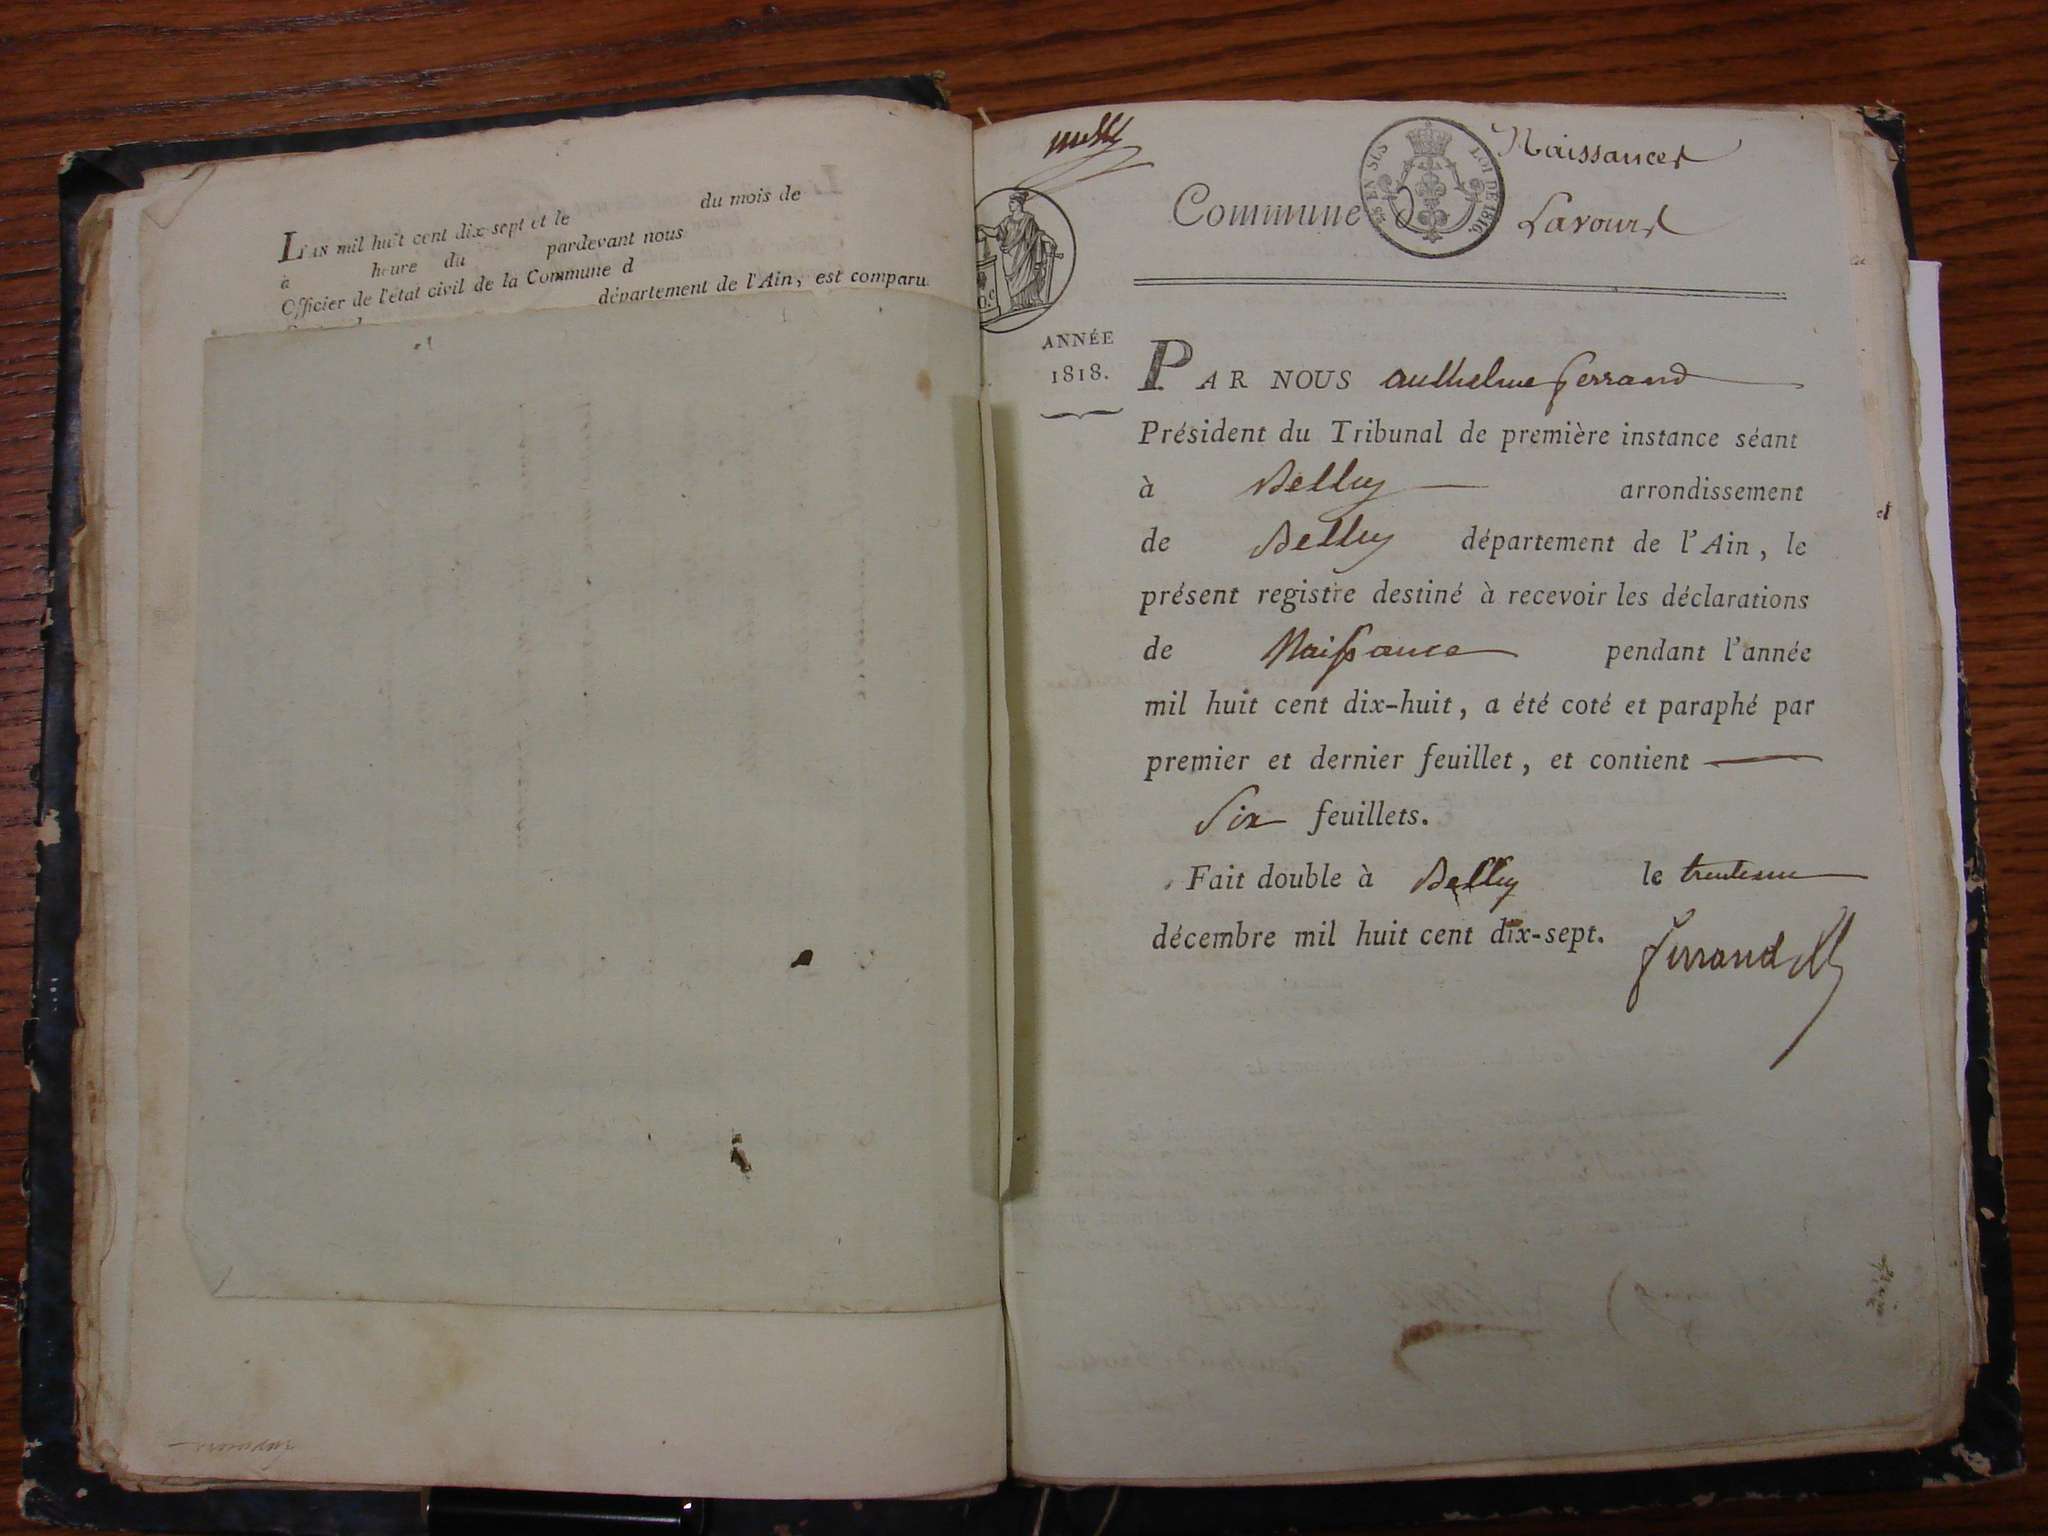 L'AN mil huit cent dix-sept et le du mois de
à heure du pardevant nous
Officier de l'état civil de la Commune d
département de l'Ain, est comparu
Naissances
Commune D Lavours
25 C. EN SUS LOI DE 1816.
ANNÉE
1818.
PAR NOUS Anthelme Ferrand
Président du Tribunal de première instance séant
à Belley arrondissement
de Belley département de l'Ain, le
présent registre destiné à recevoir les déclarations
de Naissance pendant l'année
mil huit cent dix-huit, a été coté et paraphé par
premier et dernier feuillet, et contient
Six feuillets.
Fait double à Belley le trente un
décembre mil huit cent dix-sept.
Ferrand